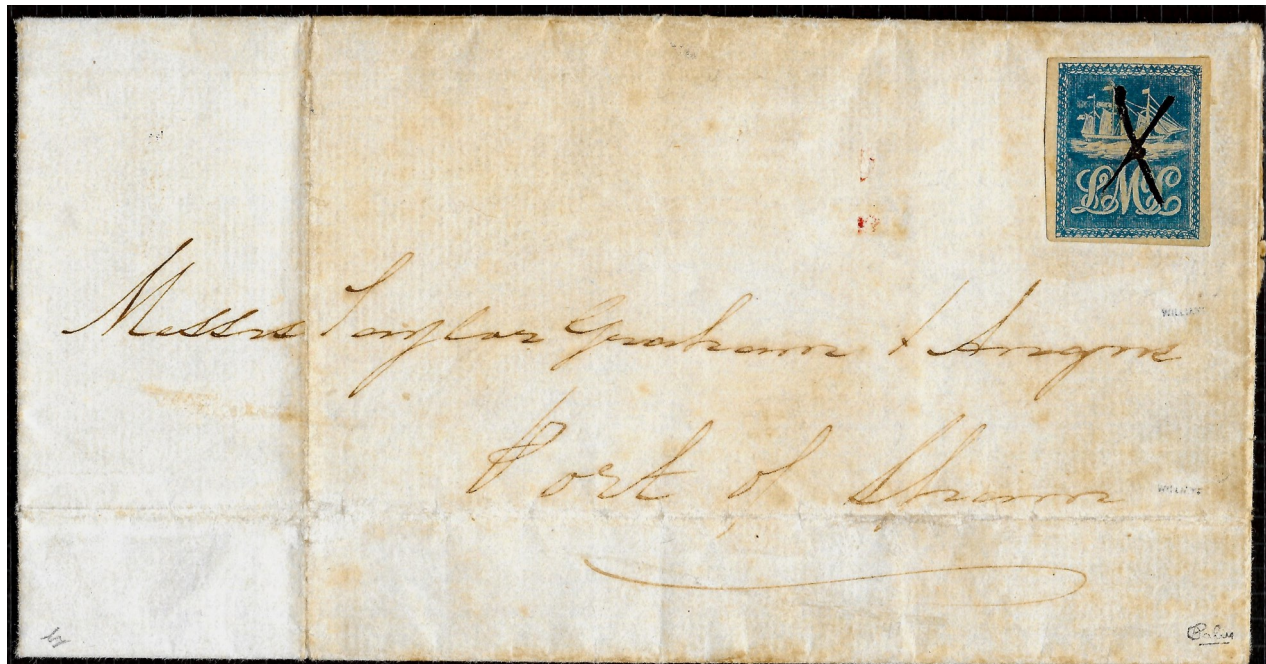 LMcL
Messrs Taylor Graham & Angus
WILLIAM
Port of Spain